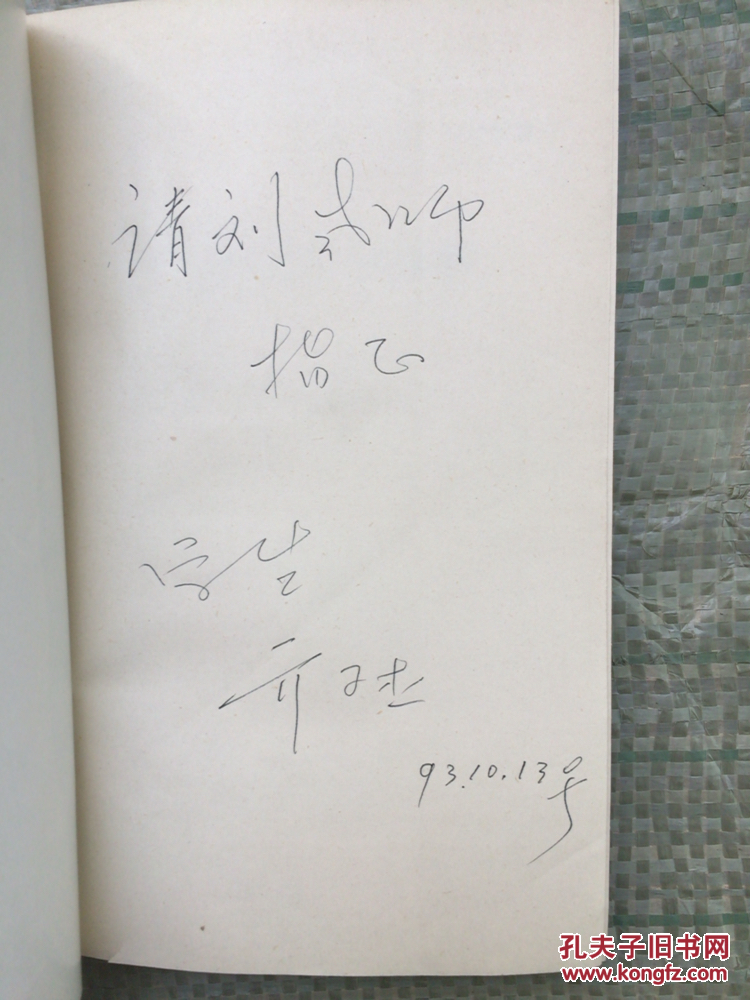 请刘老师
指正
学生
齐子杰
93.10.13号
孔夫子旧书网
www.kongfz.com